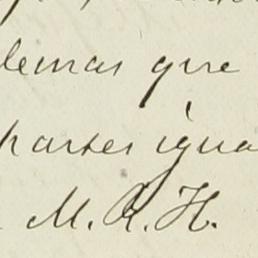 demas que
partes igua
M. R. H.